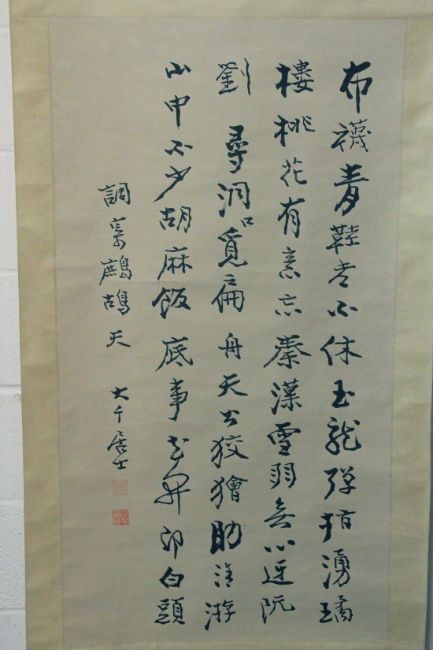 布襪青鞋老不休玉龍彈指湧瓊
樓桃花有意忘秦漢雪羽無心迓阮
劉尋洞口覓扁舟天公狡獪助清游
山中不少胡麻飯底事白頭
調寄鷓鴣天 大千居士